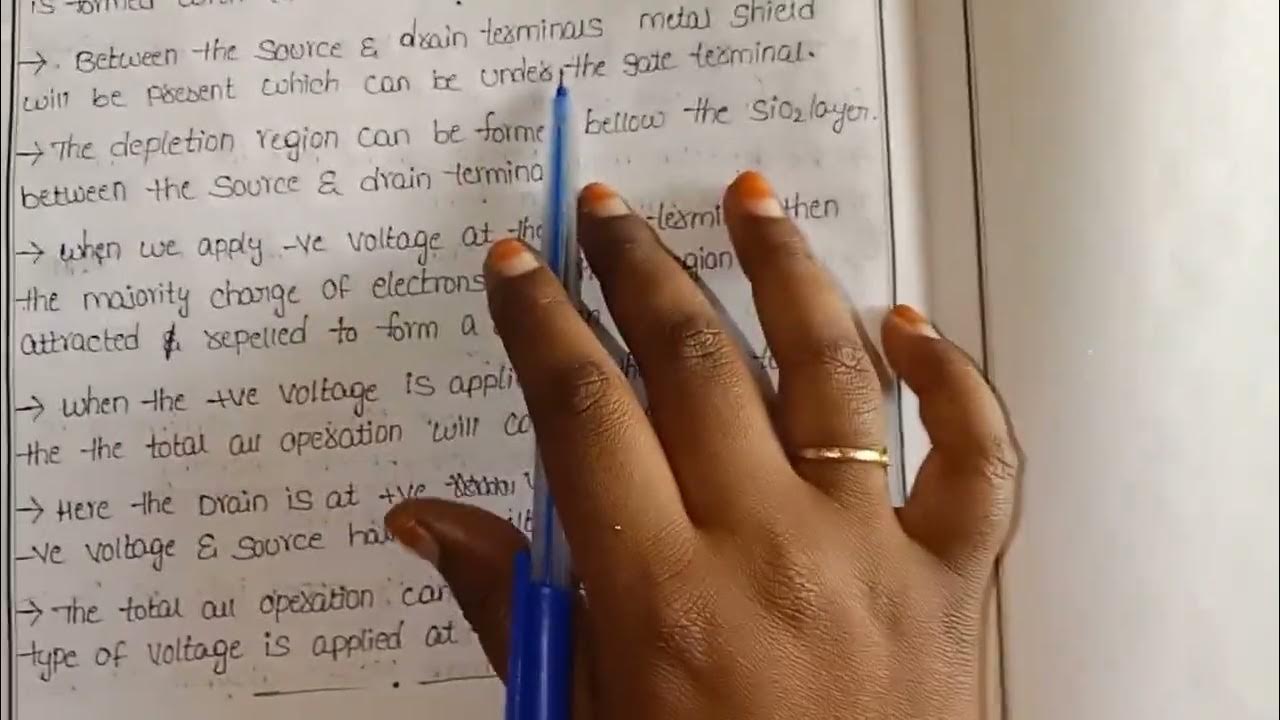 is formed
→. Between the source & drain terminals metal shield
will be present which can be under the gate terminal.
→ The depletion region can be forme bellow the SiO₂ layer.
between the source & drain termina
→ when we apply -ve voltage at the then
the majority charge of electrons
attracted & repelled to form a
→ when the +ve voltage is appli
the the total all operation will co
→ Here the Drain is at +ve
-ve voltage & source ha
→ The total all operation can
type of voltage is applied at